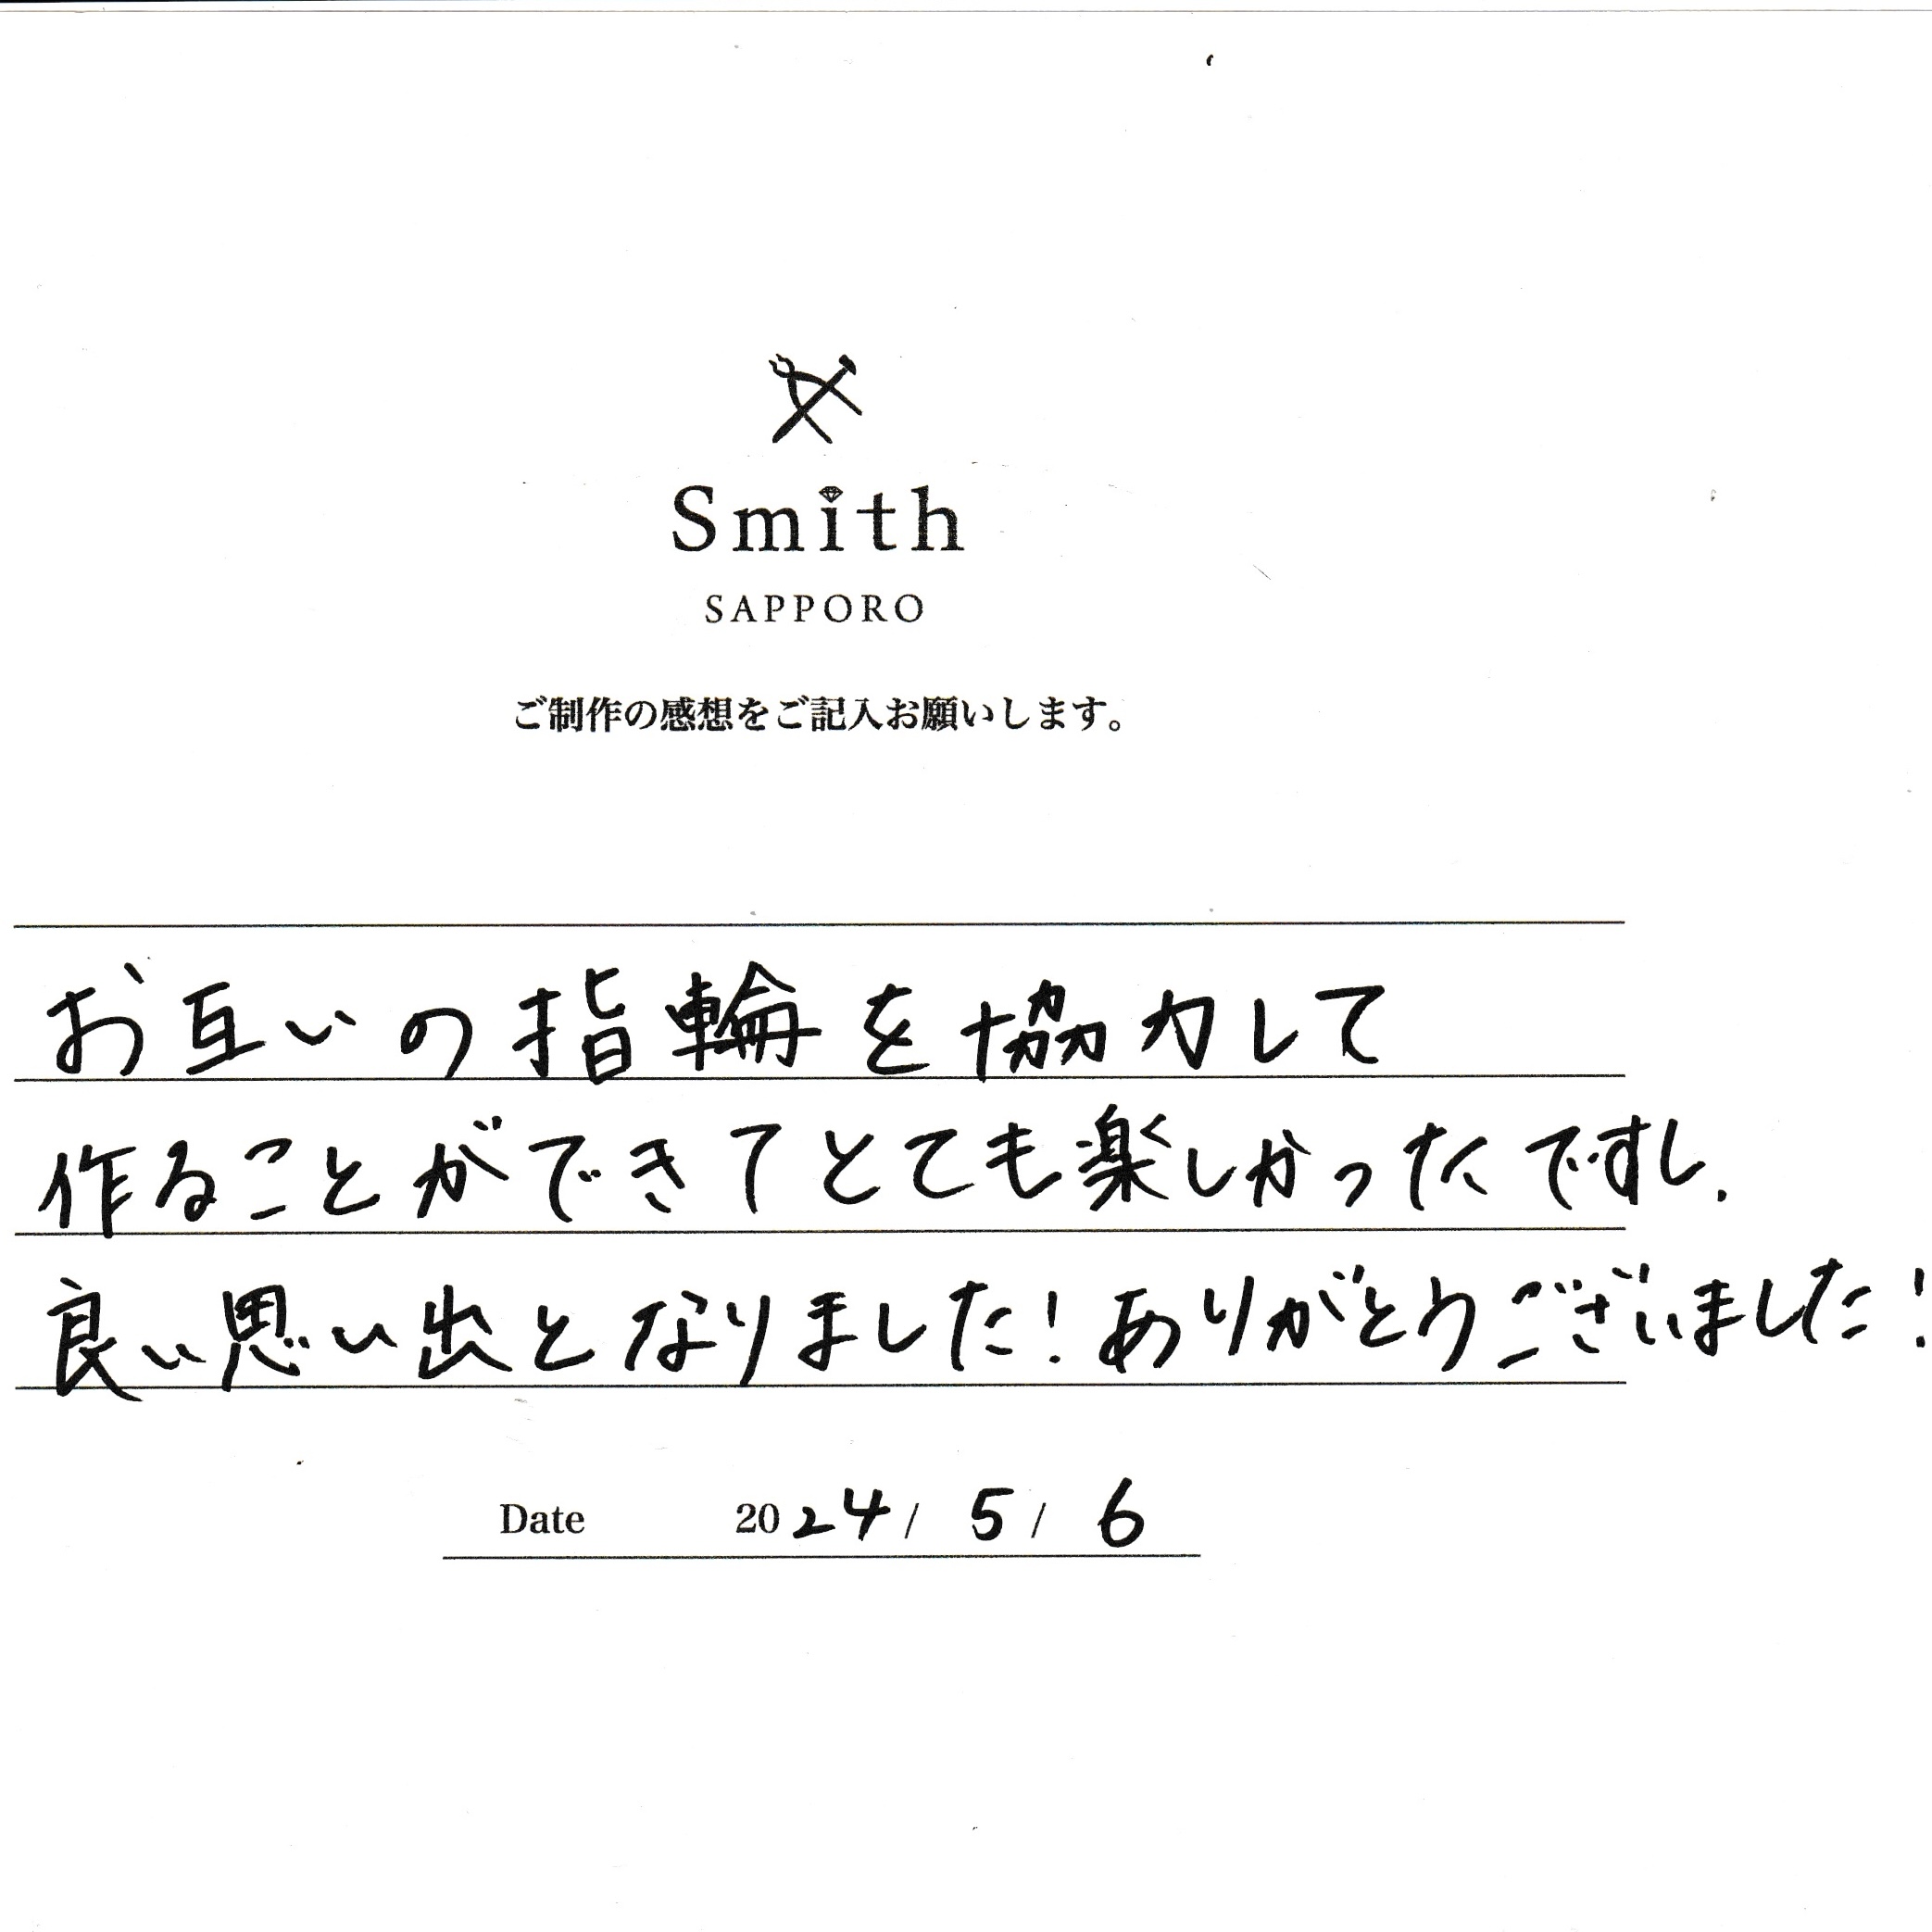 Smith
SAPPORO
ご制作の感想をご記入お願いします。
お互いの指輪を協力して
作ることができてとても楽しかったですし、
良い思い出となりました!ありがとうございました!
Date 2024/ 5/ 6